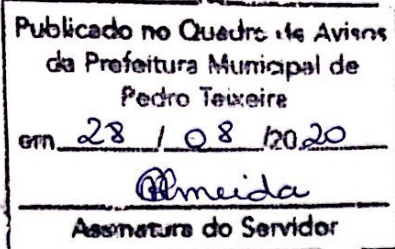 Publicado no Quadro de Avisos
da Prefeitura Municipal de
Pedro Teixeira
em 28 / 08 /2020
Almeida
Assinatura do Servidor